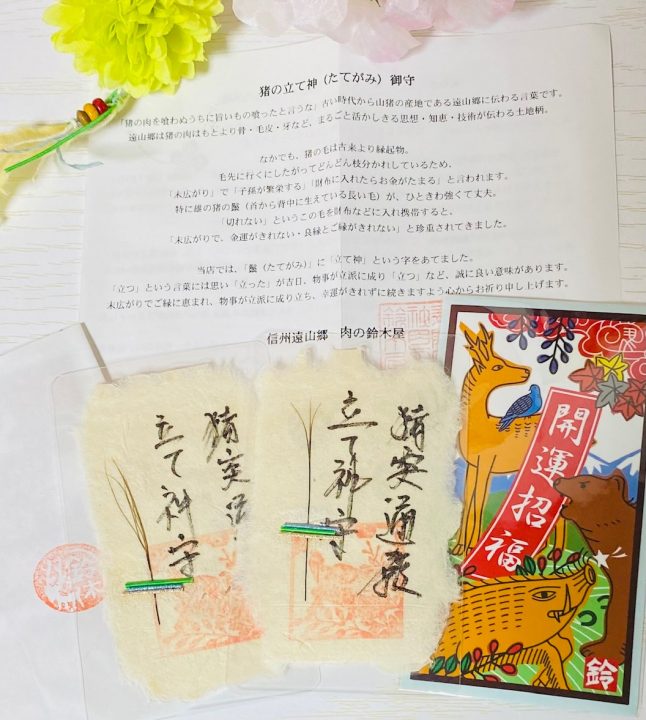 猪の立て神（たてがみ）御守
「猪の肉を喰わぬうちに旨いもの喰ったと言うな」古い時代から山猪の産地である遠山郷に伝わる言葉です。
遠山郷は猪の肉はもとより骨・毛皮・牙など、まるごと活かしきる思想・知恵・技術が伝わる土地柄。
なかでも、猪の毛は古来より縁起物。
毛先に行くにしたがってどんどん枝分かれしているため、
「末広がり」で「子孫が繁栄する」「財布に入れたらお金がたまる」と言われます。
特に雄の猪の鬣（首から背中に生えている長い毛）が、ひときわ強くて丈夫。
「切れない」というこの毛を財布などに入れ携帯すると、
「末広がりで、金運がきれない・良縁とご縁がきれない」と珍重されてきました。
当店では、「鬣（たてがみ）」に「立て神」という字をあてました。
「立つ」という言葉には思い「立った」が吉日、物事が立派に成り「立つ」など、誠に良い意味があります。
末広がりでご縁に恵まれ、物事が立派に成り立ち、幸運がきれずに続きますよう心からお祈り申し上げます。
信州遠山郷　肉の鈴木屋
猪突通
立て神守
猪突通
立て神守
開運招福
鈴